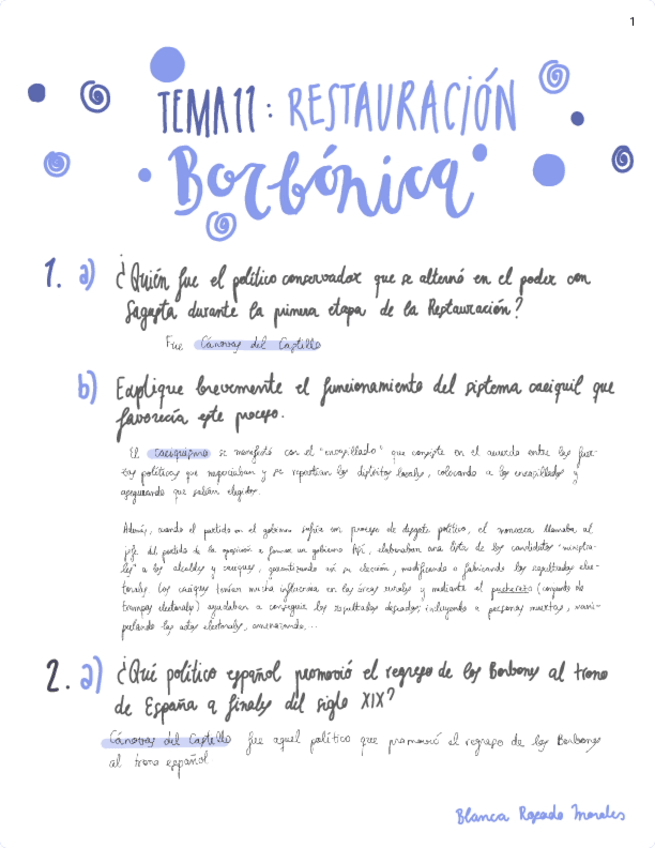 1
TEMA 11: RESTAURACIÓN
Borbónica
1. a) ¿Quién fue el político conservador que se alternó en el poder con
Sagasta durante la primera etapa de la Restauración?
Fue Cánovas del Castillo
b) Explique brevemente el funcionamiento del sistema caciquil que
favorecía este proceso.
El caciquismo se manifestó con el "encasillado" que consiste en el acuerdo entre las fuer-
zas políticas que negociaban y se repartían los distritos locales, colocando a los encasillados y
asegurando que salían elegidos.
Además, cuando el partido en el gobierno sufría un proceso de desgaste político, el monarca llamaba al
jefe del partido de la oposición a formar un gobierno. Así, elaboraban una lista de los candidatos "ministra-
les" a los alcaldes y caciques, garantizando así su elección, modificando o fabricando los resultados elec-
torales. Los caciques tenían mucha influencia en las áreas rurales y mediante el pucherazo (conjunto de
trampas electorales) ayudaban a conseguir los resultados deseados, incluyendo a personas muertas, mani-
pulando las actas electorales, amenazando,...
2. a) ¿Qué político español promovió el regreso de los Borbones al trono
de España a finales del siglo XIX?
Cánovas del Castillo fue aquel político que promovió el regreso de los Borbones
al trono español
Blanca Rosado Morales